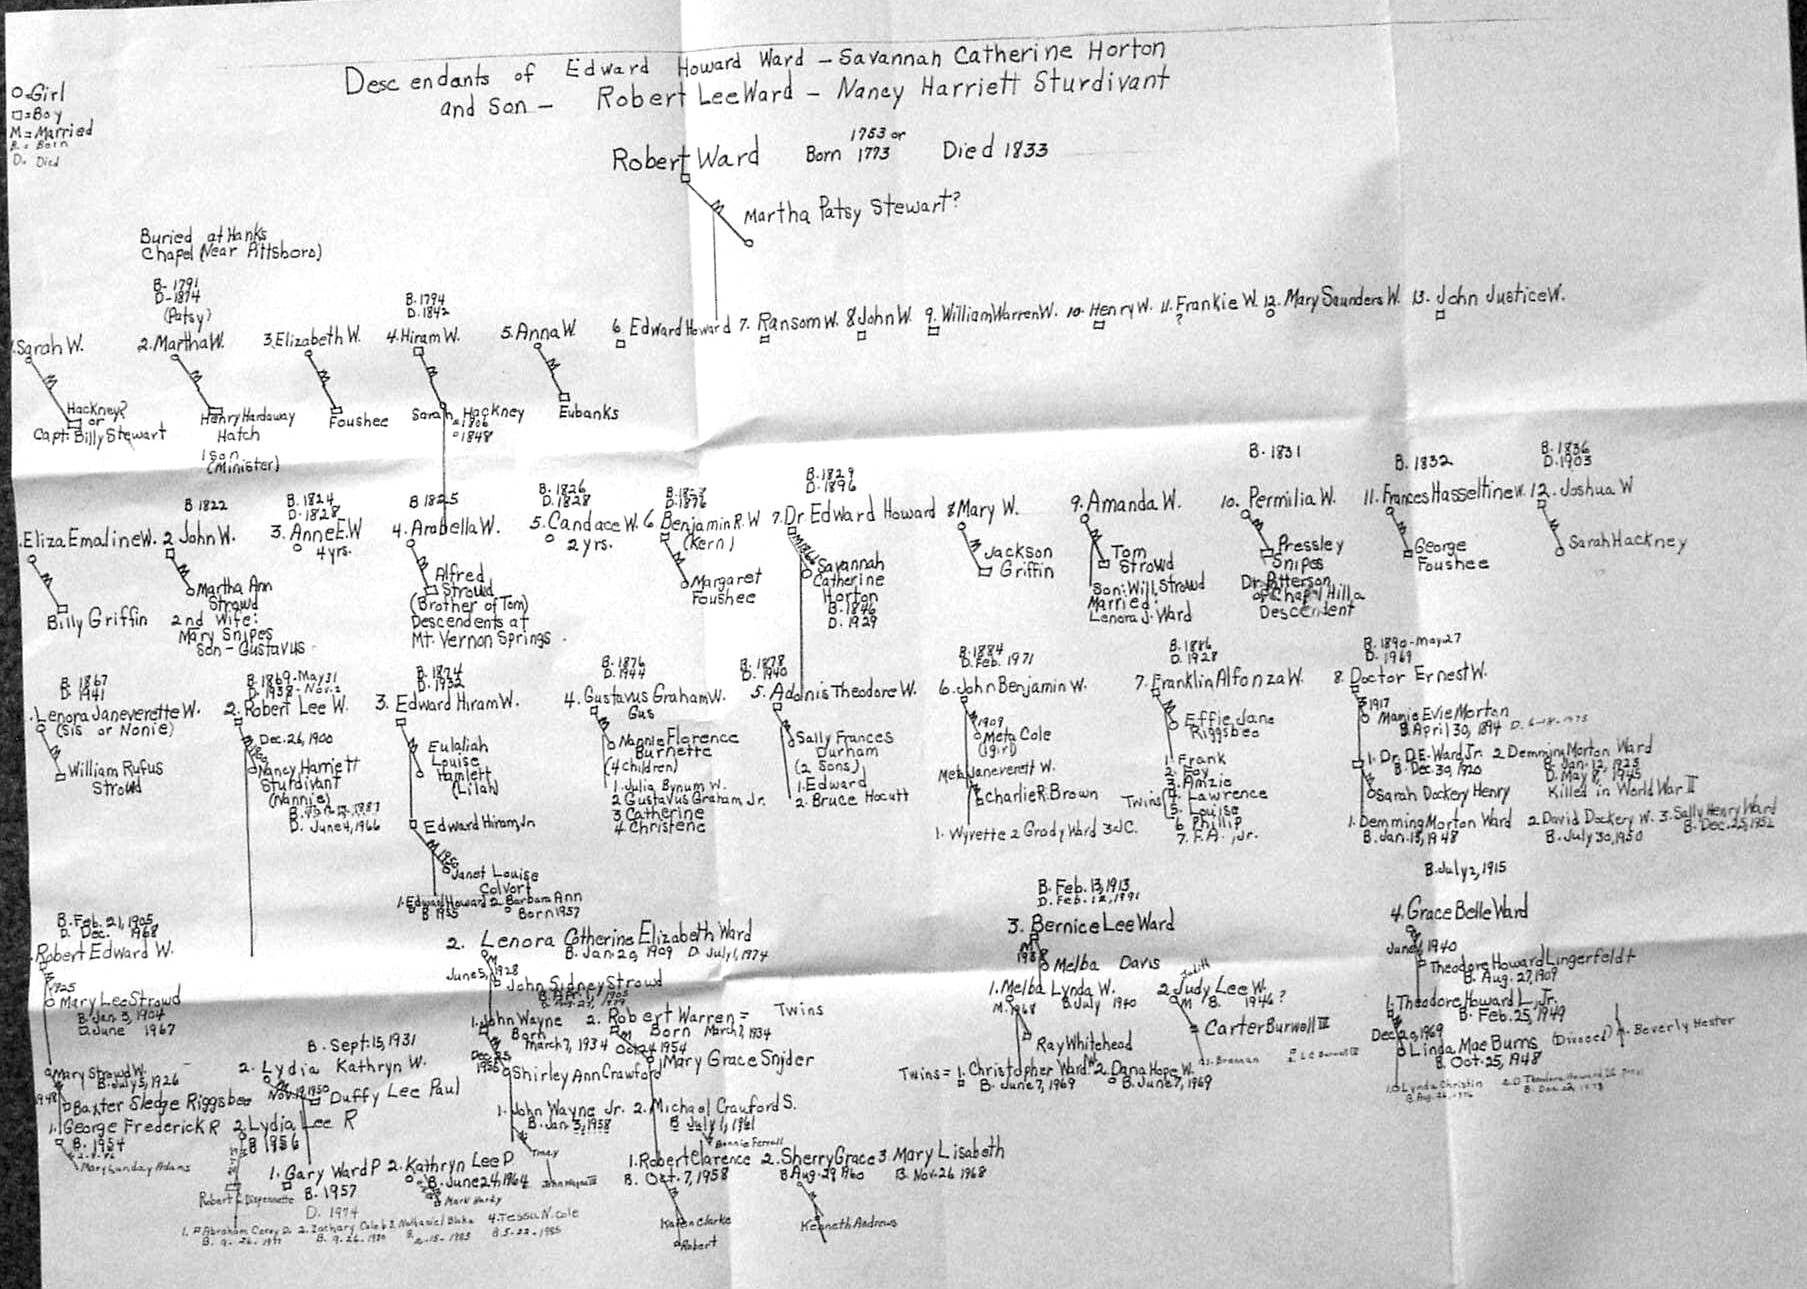 Descendants of Edward Howard Ward - Savannah Catherine Horton
and son - Robert Lee Ward - Nancy Harriett Sturdivant
O=Girl
□=Boy
M=Married
B=Born
D=Died
Robert Ward Born 1753 or 1773 Died 1833
M
Martha Patsy Stewart?
Buried at Hanks
Chapel (Near Pittsboro)
B-1791
D-1874
(Patsy)
B.1794
D.1842
1.Sarah W. 2.Martha W. 3.Elizabeth W. 4.Hiram W. 5.Anna W. 6 Edward Howard 7. Ransom W. 8 John W. 9. William Warren W. 10. Henry W. 11. Frankie W. 12. Mary Saunders W. 13. John Justice W.
?
M M M M M
Hackney?
or
Capt. Billy Stewart
Henry Hardaway
Hatch
1 son
(Minister)
Foushee
Sarah Hackney
1806
1848
Eubanks
B 1822
B.1824
D.1828
B 1825
B.1826
D.1828
D.1876
B.1829
D.1896
B.1831
B.1832
B.1836
D.1903
1.Eliza Emaline W. 2 John W. 3. Anne E.W 4. Arabella W. 5. Candace W. 6 Benjamin R.W 7. Dr. Edward Howard 8 Mary W. 9. Amanda W. 10. Permilia W. 11. Frances Hasseltine W. 12. Joshua W
4 yrs.
2 yrs.
(Kern)
Billy Griffin
Martha Ann
Strowd
2nd Wife:
Mary Snipes
Son-Gustavus
Alfred
Strowd
(Brother of Tom)
Descendents at
Mt. Vernon Springs.
Margaret
Foushee
Savannah
Catherine
Horton
B.1846
D.1929
Jackson
Griffin
Tom
Strowd
Son: Will Strowd
Married:
Lenora J. Ward
Pressley
Snipes
Dr. Patterson
of Chapel Hill a
Descendent
George
Foushee
Sarah Hackney
B.1867
D.1941
B.1869-May 31
D.1938-Nov.2
B.1874
D.1952
B.1876
D.1944
B.1878
D.1940
B.1884
D.Feb. 1971
B.1886
D.1928
B.1890-May 27
D.1969
1.Lenora Janeverette W. 2. Robert Lee W. 3. Edward Hiram W. 4. Gustavus Graham W. 5. Adonis Theodore W. 6. John Benjamin W. 7. Franklin Alfonza W. 8. Doctor Ernest W.
(Sis or Nonie)
Gus
William Rufus
Strowd
Dec.26,1900
Nancy Harriett
Sturdivant
(Nannie)
D. June 4,1966
Eulaliah
Louise
Hamlett
(Lilah)
Edward Hiram,Jr
M 1950
Janet Louise
Colvort
1.Edward Howard 2. Barbara Ann
B 1955 Born 1957
Nannie Florence
Burnette
(4 children)
1. Julia Bynum W.
2 Gustavus Graham Jr.
3 Catherine
4. Christene
Sally Frances
Durham
(2 sons)
1. Edward
2. Bruce Hocutt
1909
Meta Cole
(1girl)
Meta Janeverett W.
Charlie R. Brown
1. Wyvette 2 Grady Ward 3.J.C.
Effie Jane
Riggsbee
1. Frank
2. Foy
3. Amzie
Twins 4. Lawrence
5. Louise
6 Phillip
7. F.A., Jr.
1917
Mamie Evie Morton
B. April 30, 1894
1. Dr. D.E. Ward Jr. 2 Demming Morton Ward
B. Dec. 30, 1920 B. Jan. 12, 1925
D. May 8, 1945
Killed in World War II
Sarah Dockery Henry
1. Demming Morton Ward 2. David Dockery W. 3. Sally Henry Ward
B. Jan. 13, 1948 B. July 30, 1950 B. Dec. 25, 1952
B. Feb. 21, 1905
D. Dec. 1968
1.Robert Edward W.
1925
Mary Lee Strowd
B. Jan 3, 1904
D. June 1967
2. Lenora Catherine Elizabeth Ward
B. Jan. 20, 1909 D. July 1, 1974
June 5, 1928
John Sidney Strowd
B. Feb. 13, 1913
D. Feb. 12, 1991
3. Bernice Lee Ward
M
1938
Melba Davis
B. July 2, 1915
4. Grace Belle Ward
June 1940
Theodore Howard Lingerfeldt
B. Aug. 27, 1909
1. John Wayne 2. Robert Warren = Twins
Born Born March 7, 1934
March 7, 1934 Oct 24 1954
Dec. 25
1955
Shirley Ann Crawford
Mary Grace Snyder
1. Melba Lynda W. 2. Judy Lee W.
Judith
B. July 1940 B. 1946?
M.1968
Ray Whitehead
Carter Burwell III
1. Brennan
Twins = 1. Christopher Ward W. 2. Dana Hope W.
B. June 7, 1969 B. June 7, 1969
1. Theodore Howard L., Jr.
B. Feb. 25, 1949
Dec 20, 1969
Linda Mae Burns (Divorced) Beverly Hester
B. Oct. 25, 1948
1. Lynda Christin
B. Sept. 15, 1931
1.Mary Strowd W. 2. Lydia Kathryn W.
B. July 5, 1926
1948
Baxter Sledge Riggsbee
Duffy Lee Paul
1. George Frederick R 2. Lydia Lee R
B. 1954 B 1956
Mary Lunday Adams
1. Gary Ward P 2. Kathryn Lee P
B. 1957 B. June 24, 1964
D. 1974
Mark Hardy
1. John Wayne Jr. 2. Michael Crawford S.
B. Jan. 3, 1958 B July 1, 1961
Bonnie Ferrell
Tracy
John Wayne III
1. Robert Clarence 2. Sherry Grace 3. Mary Lisabeth
B. Oct. 7, 1958 B Aug. 29 1960 B. Nov. 26 1968
Karen Clarke
Robert
Kenneth Andrews
1. Abraham Corey D. 2. Zachary Caleb 3. Nathaniel Blake 4. Tessa N. Cole